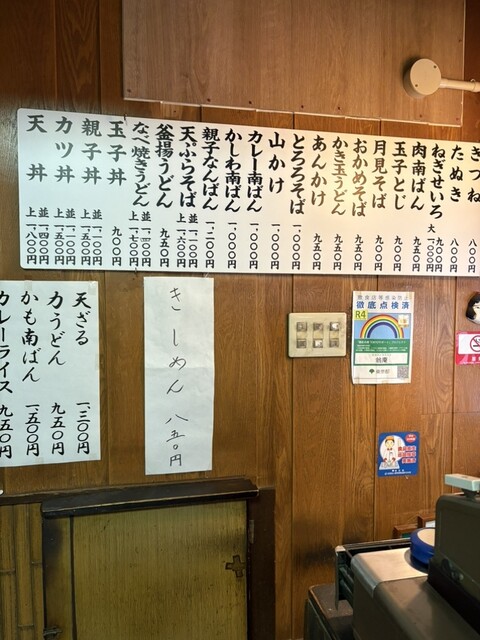 きつね 八〇〇円
たぬき 八〇〇円
ねぎせいろ 九〇〇円 大 一、〇〇〇円
肉南ばん 九五〇円
玉子とじ 九〇〇円
月見そば 九〇〇円
おかめそば 九五〇円
かき玉うどん 九五〇円
あんかけ 九五〇円
とろろそば 一、〇〇〇円
山かけ 一、〇〇〇円
カレー南ばん 一、〇〇〇円
かしわ南ばん 一、〇〇〇円
親子なんばん 一、二〇〇円
天ぷらそば 並 一、二〇〇円 上 一、六〇〇円
釜揚うどん 九五〇円
なべ焼きうどん 並 一、三〇〇円 上 一、七〇〇円
玉子丼 九〇〇円
親子丼 並 一、一〇〇円 上 一、五〇〇円
カツ丼 並 一、一〇〇円 上 一、五〇〇円
天丼 並 一、四〇〇円 上 一、八〇〇円
天ざる 一、三〇〇円
力うどん 九五〇円
かも南ばん 一、五〇〇円
カレーライス 九五〇円
きしめん 八五〇円
徹底点検済
R4